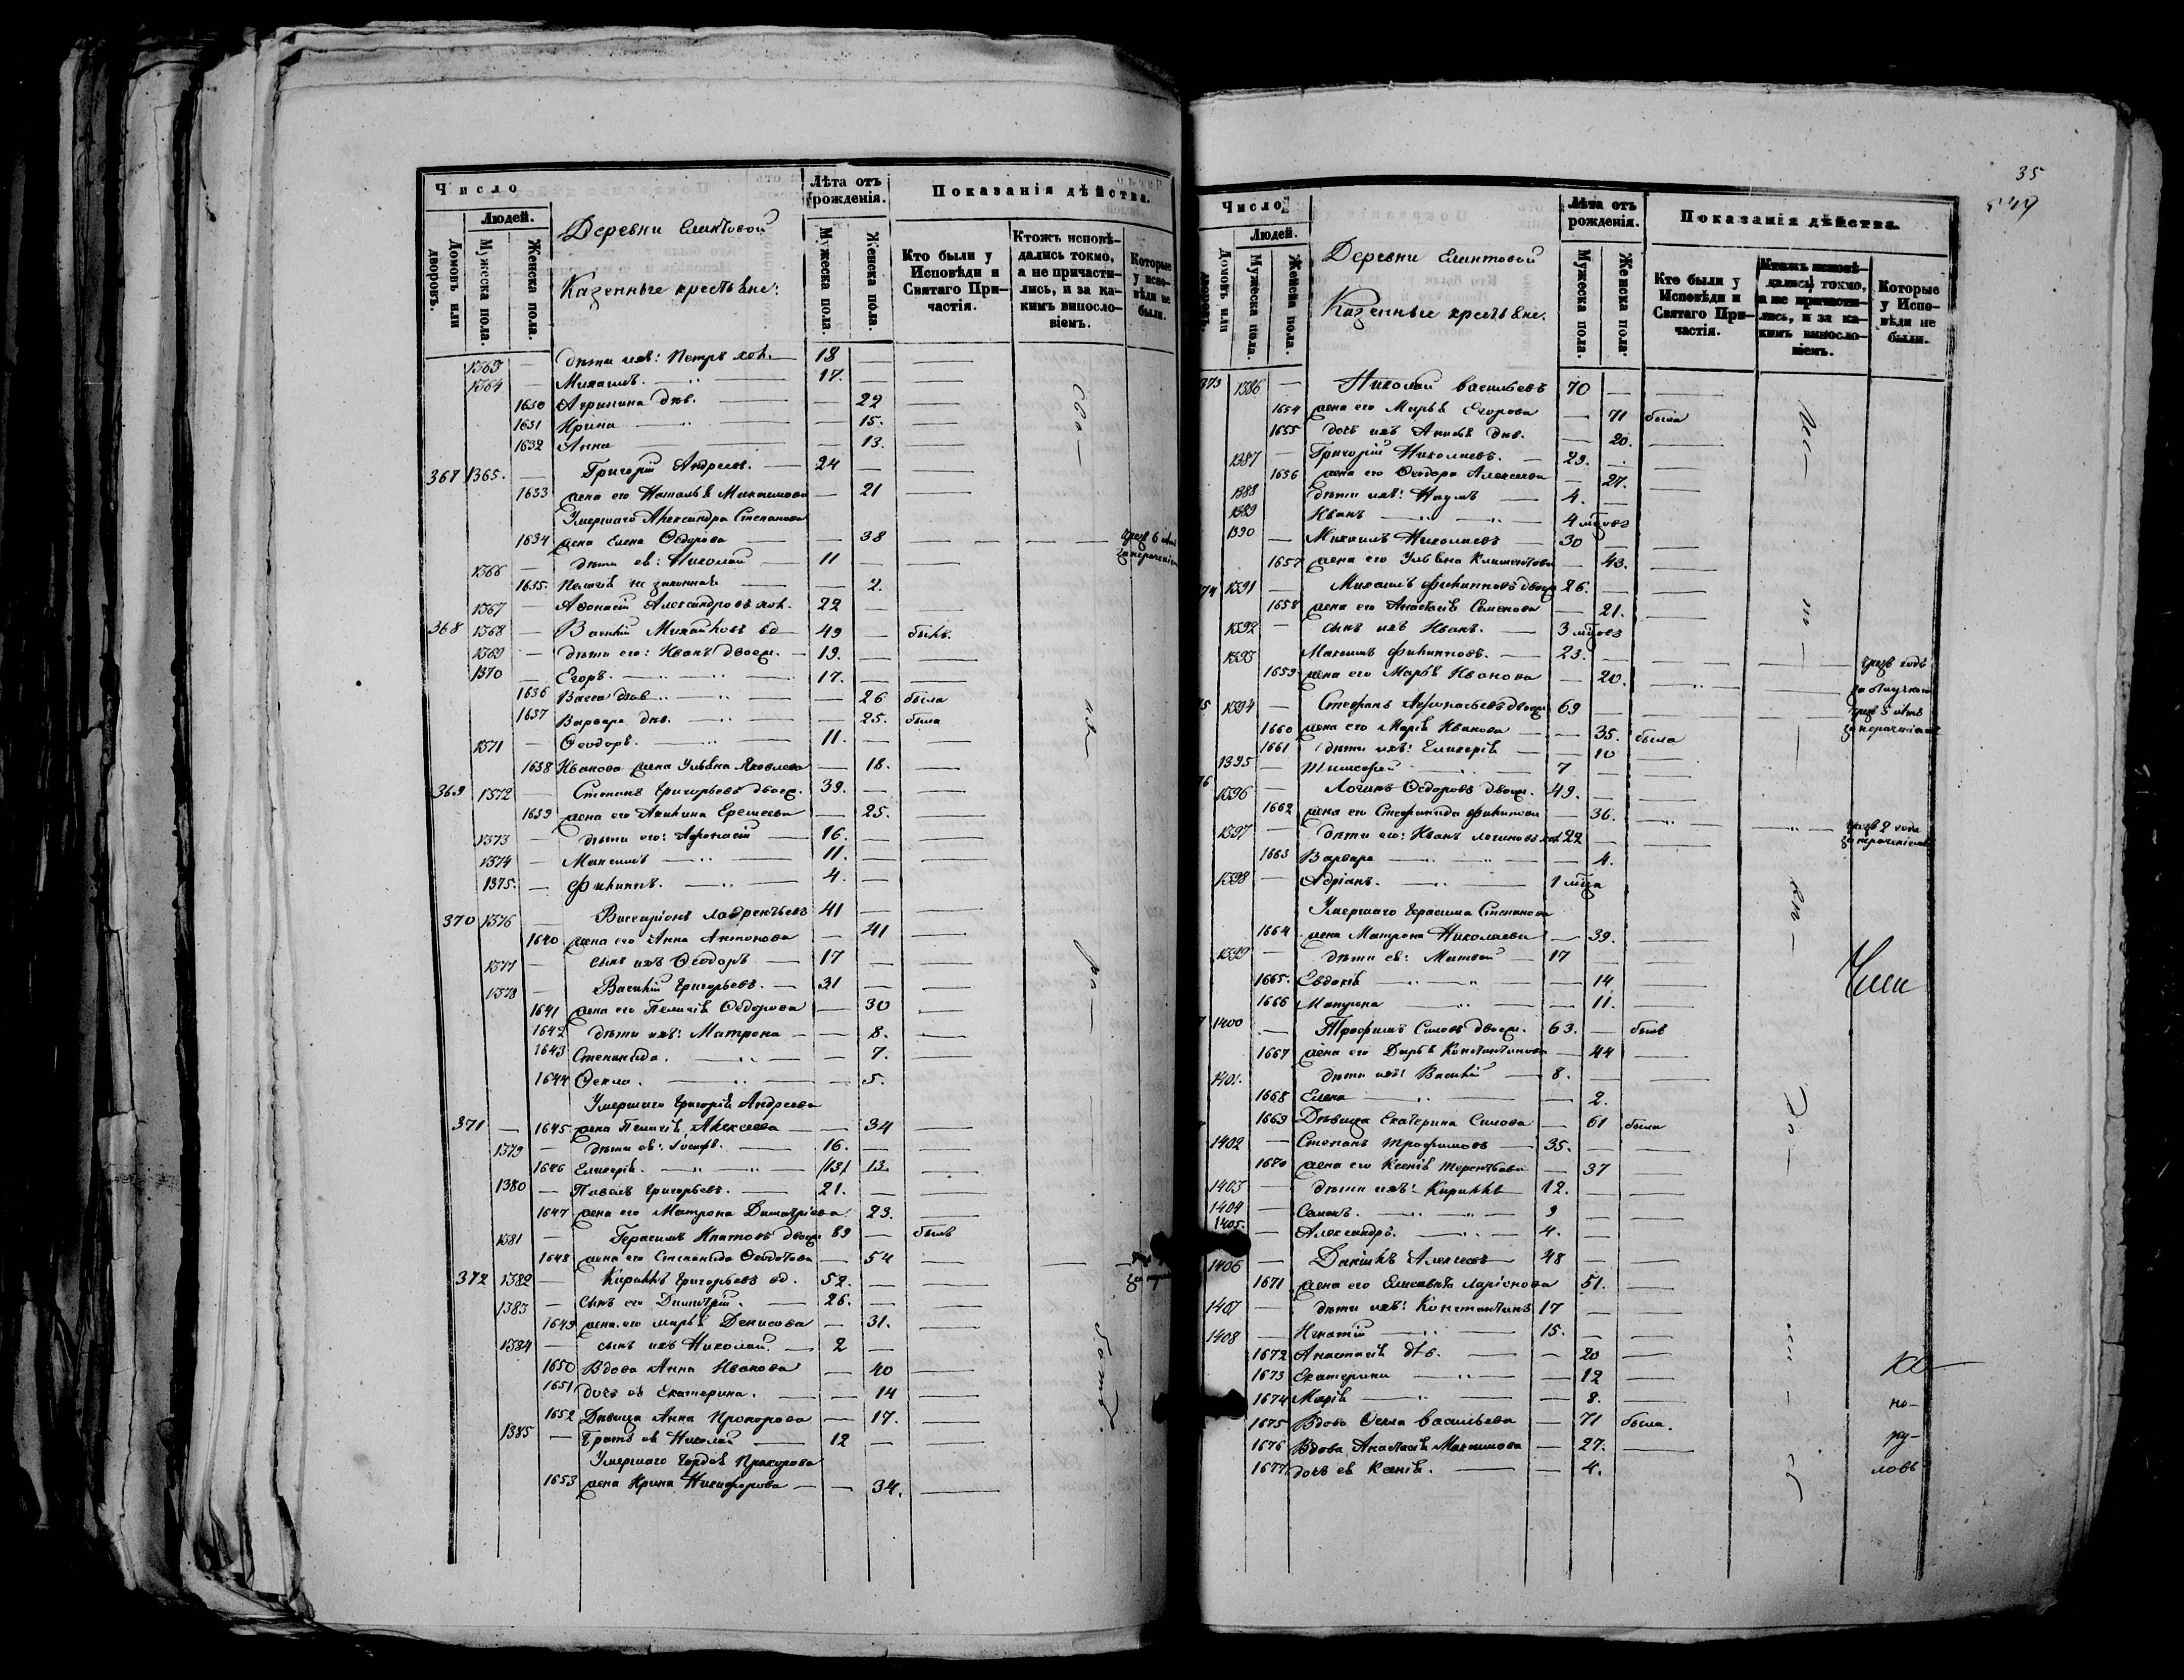 Число
Людей.
Домовъ или дворовъ.
Мужеска пола.
Женска пола.
Деревни Елинтовой
Казенные крестьяне:
Лѣта отъ рожденія.
Мужеска пола.
Женска пола.
Показанія дѣйства.
Кто были у Исповѣди и Святаго Причастія.
Ктожъ исповѣдались токмо, а не причастились, и за какимъ винословіемъ.
Которые у исповѣди не были.
1363 — дѣти ихъ: Петръ хол. 18 —
1364 — Михаилъ. 17. —
1630 Агрипина двк. — 22
1631 Ирина — 15.
1632 Анна — 13.
367 1365. — Григорій Андреевъ. 24 —
1633 жена его Наталья Максимова — 21
Умершаго Александра Степанова
1634 жена Елена Ѳедорова — 38
1366 — дѣти ея: Николай 11 —
1635. Пелагія незаконная — 2.
1367 — Аѳонасій Александровъ хол. 22 —
368 1368 — Василій Михайловъ вд 49 — былъ.
1369 — дѣти его: Иванъ двоем. 19. —
1370 — Егоръ. 17. —
1636 Васса двк. — 26 была
1637 Варвара двк. — 25. была
1371 — Ѳеодоръ. 11. —
1638 Иванова жена Ульяна Яковлева — 18.
369 1372 — Степанъ Григорьевъ двоем. 39. —
1639 жена его Акилина Еремеева — 25.
1373 — дѣти его: Афонасій 16. —
1374 — Максимъ 11. —
1375. — Филиппъ. 4. —
370 1376 — Виссаріонъ Лаврентьевъ 41 —
1640. жена его Анна Антонова — 41
1377 — сынъ ихъ Ѳеодоръ 17 —
1378 — Василій Григорьевъ. 31 —
1641 жена его Пелагія Ѳедорова — 30
1642 дѣти ихъ: Матрона — 8.
1643 Степанида. — 7.
1644 Ѳекла. — 5.
Умершаго Григорія Андреева
371 — 1645. жена Пелагія Алексеева — 34
1379 — дѣти ея: Іосифъ. 16. —
1646 Гликерія. /13/ 13.
1380 — Павелъ Григорьевъ. 21. —
1647 жена его Матрона Димитріева 23.
1381 — Герасимъ Ипатовъ двоем 89 — былъ
1648 жена его Степанида Ѳедотова — 54
372 1382 — Кириллъ Григорьевъ вд. 52. —
1383 — сынъ его Димитрій. 26. —
1649 жена его Марья Денисова — 31.
1384 — сынъ ихъ Николай. 2 —
1650 Вдова Анна Иванова — 40
1651 дочь ея Екатерина. — 14
1652 Девица Анна Прохорова — 17.
1385 — братъ ея Николай 12 —
Умершаго Гордея Прохорова
1653 жена Ирина Никифорова — 34.
35
Число
Людей.
Домовъ или дворовъ.
Мужеска пола.
Женска пола.
Деревни Елинтовой
Казенные крестьяне.
Лѣта отъ рожденія.
Мужеска пола.
Женска пола.
Показанія дѣйства.
Кто были у Исповѣди и Святаго Причастія.
Ктожъ исповѣдались токмо, а не причастились, и за какимъ винословіемъ.
Которые у Исповѣди не были.
373 1386 — Николай Васильевъ 70 —
1654 жена его Марья Егорова — 71 была
1655 дочь ихъ Анисья двк. — 20.
1387 — Григорій Николаевъ. 29. —
1656 жена его Ѳеодора Алексеева — 27.
1388 дѣти ихъ: Наумъ 4.
1389 Иванъ 4 мцовъ
1390 — Михаилъ Николаевъ 30 —
1657 жена его Ульяна Климентова — 43.
74 1391 — Михаилъ Филипповъ двоем 26. —
1658 жена его Анастасія Семенова — 21.
1392 — сынъ ихъ Иванъ. 3 мцовъ
1393 Максимъ Филипповъ. 23. —
1659 жена его Марья Иванова — 20. чрезъ годъ за отлучкою
1394 — Стефанъ Афонасьевъ двоем 69 — чрезъ 5 лѣтъ за нерачніемъ
1660 жена его Марія Иванова — 35. была
1661 дѣти ихъ: Гликерія — 10
1395 — Тимофей 7 —
1396 — Логинъ Ѳедоровъ двоем. 49. —
1662 жена его Стефанида Филипова — 36. чрезъ 2 года за нерачніемъ
1397 — дѣти его: Иванъ Логиновъ хол 22 —
1663 Варвара — 4.
1398 — Адріанъ. 1 мца
Умершаго Герасима Степанова
1664 жена Матрона Николаева — 39.
1399 — дѣти ея: Матвей 17 —
1665. Евдокія — 14
1666 Матрона — 11.
1400 — Трофимъ Силовъ двоем. 63. — былъ
1667 жена его Дарья Константинова — 44
1401. дѣти ихъ: Василій 8. —
1668 Елена — 2.
1669 Дѣвица Екатерина Силова — 61 была
1402 — Степанъ Трофимовъ 35. —
1670 жена его Ксенія Терентьева — 37
1403 — дѣти ихъ: Кириллъ 12. —
1404 — Семенъ. 9 —
1405. — Александръ. 4. —
1406 — Даніилъ Алексеевъ 48 —
1671 жена его Елисавета Ларіонова 51.
1407 — дѣти ихъ: Константинъ 17 —
1408 — Игнатій 15. —
1672 Анастасія двк. — 20
1673 Екатерина — 12
1674 Марія — 8.
1675 Вдова Ѳекла Васильева — 71 была.
1676 Вдова Анастасія Максимова — 27.
1677 дочь ея Ксенія. — 4.